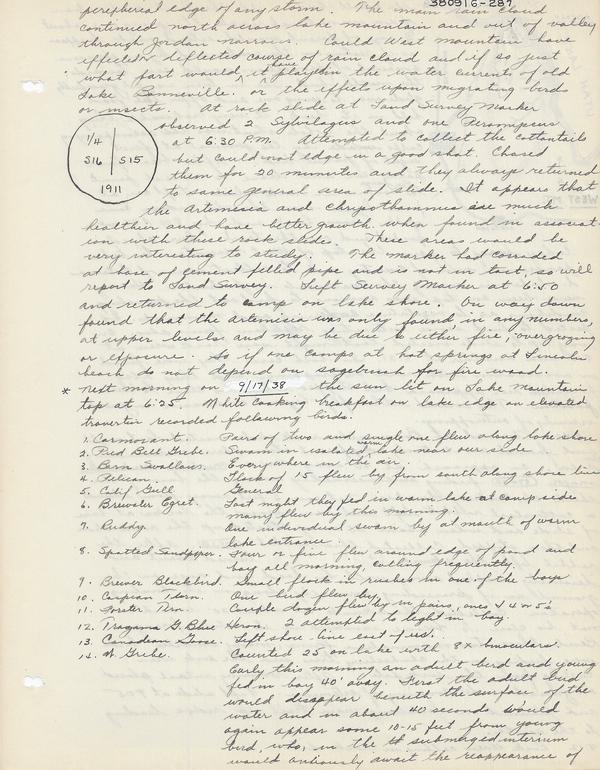 380916-287
peripheral edge of any storm. The main rain cloud
continued north across lake mountain and out of valley
through Jordan narrows. Could West mountain have
effected or deflected course of rain cloud and if so just
what part would it have played in the water currents of old
Lake Bonneville. or the effects upon migrating birds
or insects. At rock slide at Land Survey Marker
observed 2 Sylvilagus and one Peromyscus
at 6:30 P.M. Attempted to collect the cottontails
but could not edge in a good shot. Chased
them for 20 minutes and they always returned
to same general area of slide. It appears that
1/4
S16 S15
1911
the Artemisia and Chrysothamnus are much
healthier and have better growth when found in associat-
ion with these rock slide. These areas would be
very interesting to study. The marker had corraded
at base of cement filled pipe and is not in tact, so will
report to Land Survey. Left Survey Marker at 6:50
and returned to camp on lake shore. On way down
found that the artemisia was only found, in any numbers,
at upper levels and may be due to either fire, overgrazing
or exposure. So if one camps at hot springs at Lincoln
beach do not depend on sagebrush for fire wood.
* Next morning on 9/17/38 the sun lit on Lake Mountain
top at 6:25. While cooking breakfast on lake edge on elevated
travertin recorded following birds.
1. Cormorant. Pairs of two and single one flew along lake shore
2. Pied Bell Grebe. Swam in isolated warm lake near our side
3. Barn Swallows. Everywhere in the air.
4. Pelican. Flock of 15 flew by from south along shore line
5. Calif Gull General
6. Brewster Egret. Last night they fed in warm lake at camp side
many flew by this morning.
7. Ruddy. One individual swam by at mouth of warm
lake entrance.
8. Spotted Sandpiper. Four or five flew around edge of pond and
bay all morning, calling frequently.
9. Brewer Blackbird. Small flock in rushes in one of the bays
10. Caspian Tern. One bird flew by
11. Forster Tern. Couple dozen flew by in pairs, ones & 4 or 5's
12. Tragama G. Blue Heron. 2 attempted to light in bay.
13. Canadean Goose. Left shore line east of us.
14. W. Grebe. Counted 25 on lake with 8x binoculars.
Early this morning an adult bird and young
fed in bay 40' away. First the adult bird
would disappear beneath the surface of the
water and in about 40 seconds would
again appear some 10-15 feet from young
bird, who, in the submerged interium
would anxiously await the reappearance of